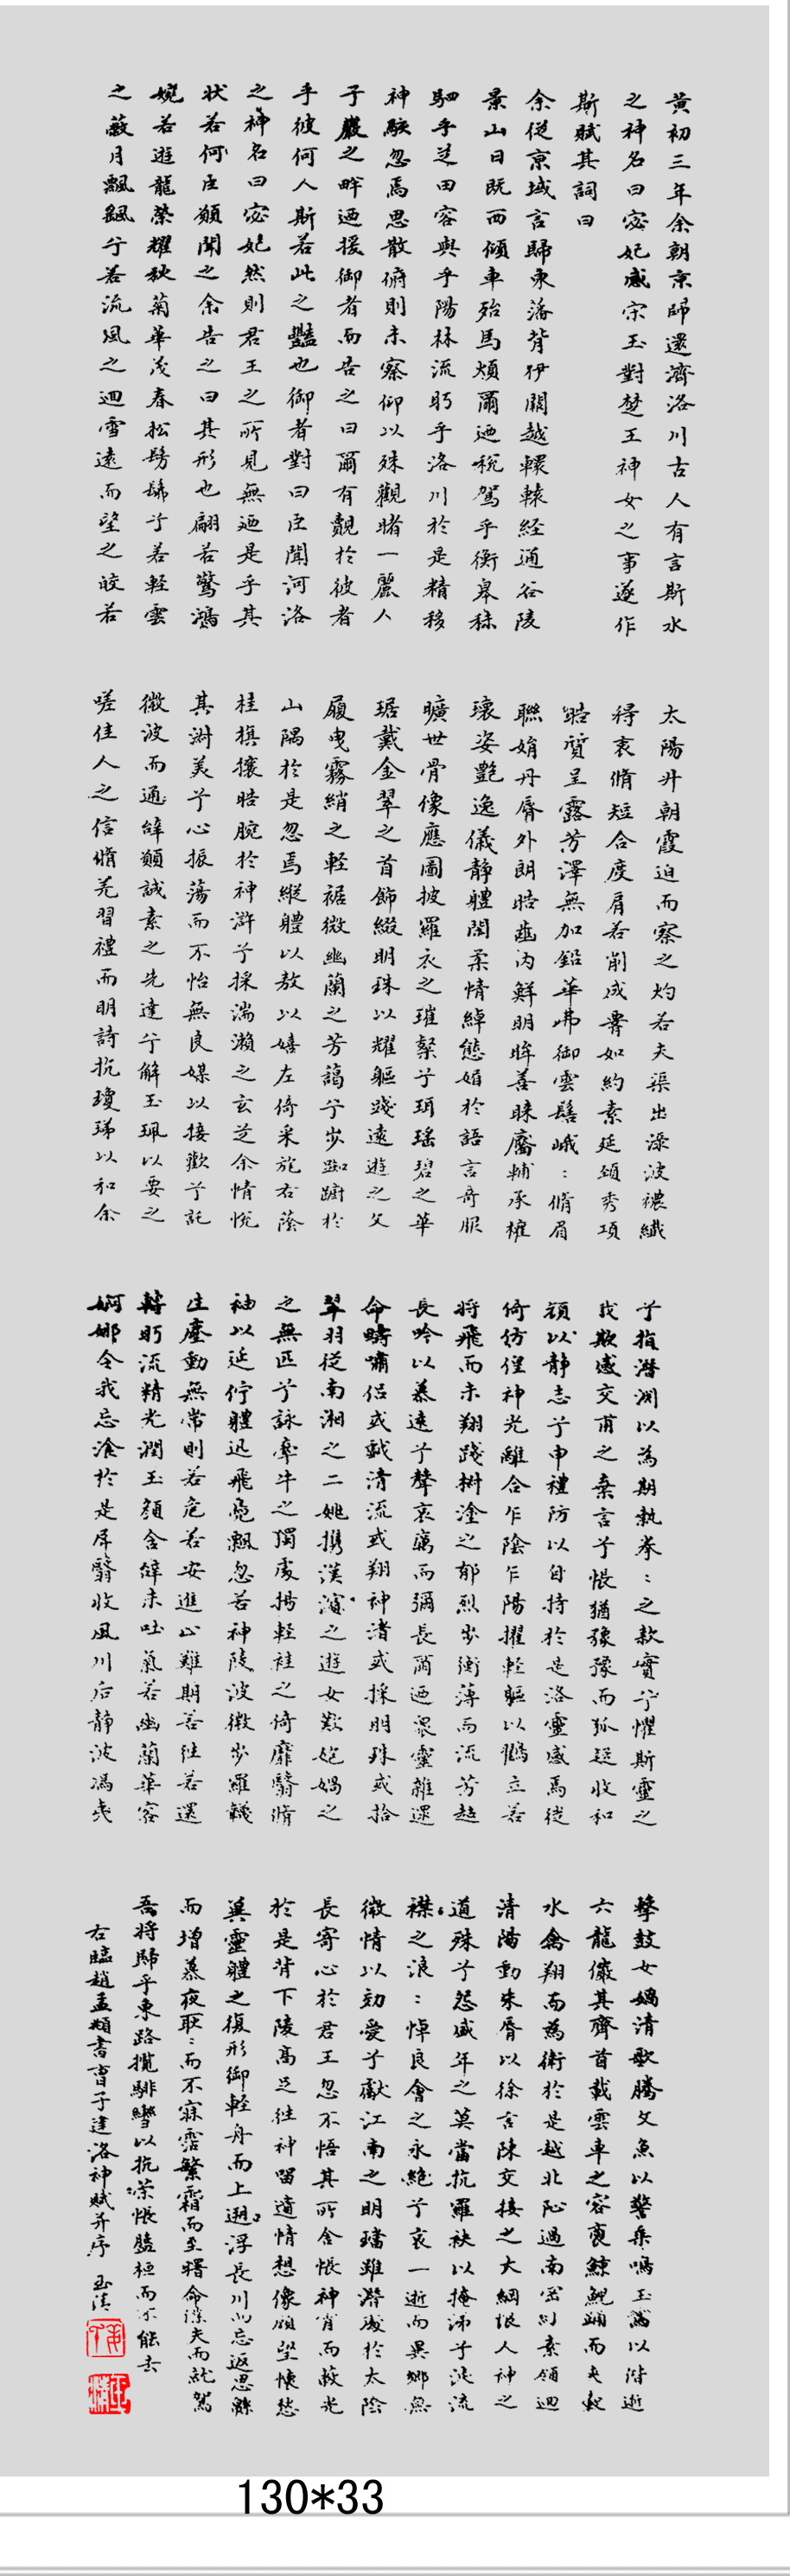 黄初三年余朝京師還濟洛川古人有言斯水
之神名曰宓妃感宋玉對楚王神女之事遂作
斯賦其詞曰
余從京域言歸東藩背伊闕越轘轅経通谷陵
景山日既西傾車殆馬煩爾迺税駕乎衡皋秣
駟乎芝田容與乎陽林流眄乎洛川於是精移
神駭忽焉思散俯則未察仰以殊觀睹一麗人
于巖之畔迺援御者而告之曰爾有覿於彼者
乎彼何人斯若此之豔也御者對曰臣聞河洛
之神名曰宓妃然則君王之所見無迺是乎其
状若何臣願聞之余告之曰其形也翩若驚鴻
婉若遊龍榮耀秋菊華茂春松髣髴兮若軽雲
之蔽月飄颻兮若流風之迴雪遠而望之皎若
太陽升朝霞迫而察之灼若夫渠出渌波襛纖
得衷脩短合度肩若削成腰如約素延頸秀項
皓質呈露芳澤無加鉛華弗御雲髻峨：脩眉
聯娟丹脣外朗皓齒内鮮明眸善睞靨輔承權
瓌姿艶逸儀静體閑柔情綽態媚於語言奇服
曠世骨像應圖披羅衣之璀粲兮珥瑤碧之華
琚戴金翠之首飾綴明珠以耀軀踐遠遊之文
履曳霧綃之軽裾微幽蘭之芳藹兮步踟蹰於
山隅於是忽焉縱體以敖以嬉左倚采旄右蔭
桂旗攘皓腕於神滸兮採湍瀨之玄芝余情悅
其淑美兮心振蕩而不怡無良媒以接歡兮託
微波而通辭願誠素之先達兮解玉珮以要之
嗟佳人之信脩羌習禮而明詩抗瓊珶以和余
兮指潜淵以為期執拳：之款實兮懼斯靈之
我欺感交甫之棄言兮悵猶豫而狐疑收和
顔以静志兮申禮防以自持於是洛靈感焉徙
倚彷徨神光離合乍陰乍陽擢軽軀以鶴立若
將飛而未翔踐椒塗之郁烈步蘅薄而流芳超
長吟以慕遠兮聲哀厲而彌長爾迺衆靈雜遝
命疇嘯侣或戲清流或翔神渚或採明珠或拾
翠羽従南湘之二姚携漢濱之遊女歎匏媧之
之無匹兮詠牽牛之獨處揚軽袿之倚靡翳脩
袖以延佇體迅飛鳧飄忽若神陵波微步羅韈
生塵動無常則若危若安進止難期若往若還
轉眄流精光潤玉顔含辭未吐氣若幽蘭華容
婀娜令我忘飡於是屏翳收風川后静波馮夷
擊鼓女媧清歌騰文魚以警乘鳴玉鸞以偕逝
六龍儼其齊首載雲車之容裔鯨鯢踊而夾轂
水禽翔而為衛於是越北沚過南岡紆素領迴
清陽動朱脣以徐言陳交接之大綱恨人神之
道殊兮怨盛年之莫當抗羅袂以掩涕兮淚流
襟之浪：悼良會之永絶兮哀一逝而異鄉無
微情以効愛兮獻江南之明璫雖潜處於太陰
長寄心於君王忽不悟其所舍悵神宵而蔽光
於是背下陵高足往神留遺情想像顧望懷愁
冀靈體之復形御軽舟而上遡浮長川而忘返思緜
而增慕夜耿：而不寐霑繁霜而至曙命僕夫而就駕
吾將歸乎東路攬騑轡以抗策悵盤桓而不能去
右臨趙孟頫書曹子建洛神賦并序 玉清
130*33